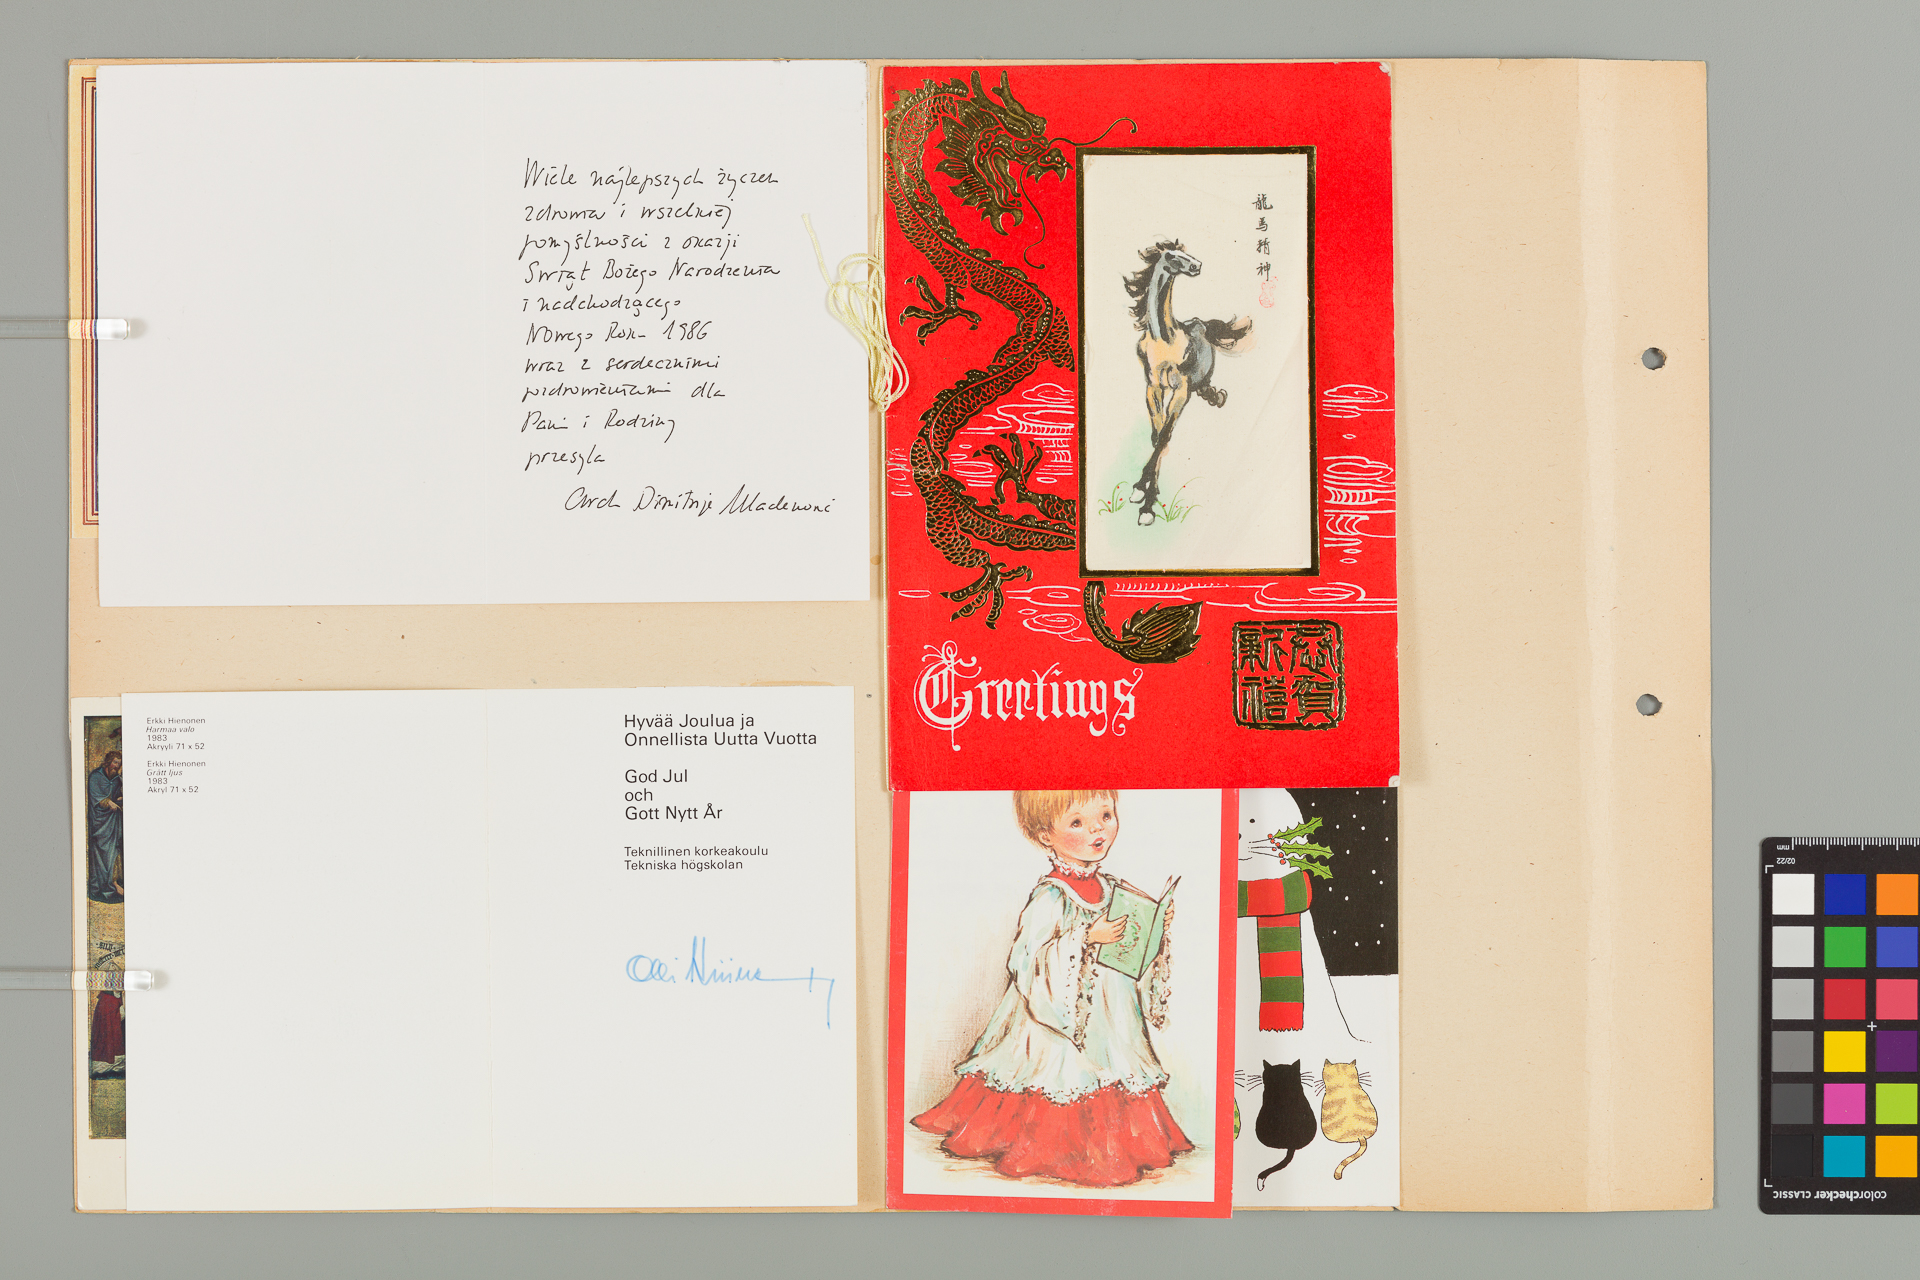 Wiele najlepszych życzeń
zdrowia i wszelkiej
pomyślności z okazji
Świąt Bożego Narodzenia
i nadchodzącego
Nowego Roku 1986
wraz z serdecznymi
pozdrowieniami dla
Pani i Rodziny
przesyła
Arch Dimitrije Mladenović
Erkki Hienonen
Harmaa valo
1983
Akryyli 71 x 52
Erkki Hienonen
Grått ljus
1983
Akryl 71 x 52
Hyvää Joulua ja
Onnellista Uutta Vuotta
God Jul
och
Gott Nytt År
Teknillinen korkeakoulu
Tekniska högskolan
Olli
龍馬精神
Greetings
恭賀
新禧
mm
02/22
colorchecker CLASSIC